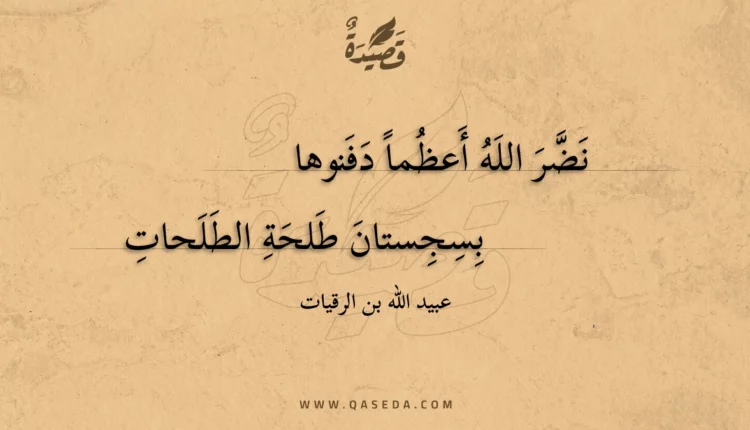 قَصِيدَةٌ
نَضَّرَ اللَهُ أَعظُماً دَفَنوها
بِسِجِستانَ طَلحَةِ الطَلَحاتِ
عبيد الله بن الرقيات
WWW.QASEDA.COM